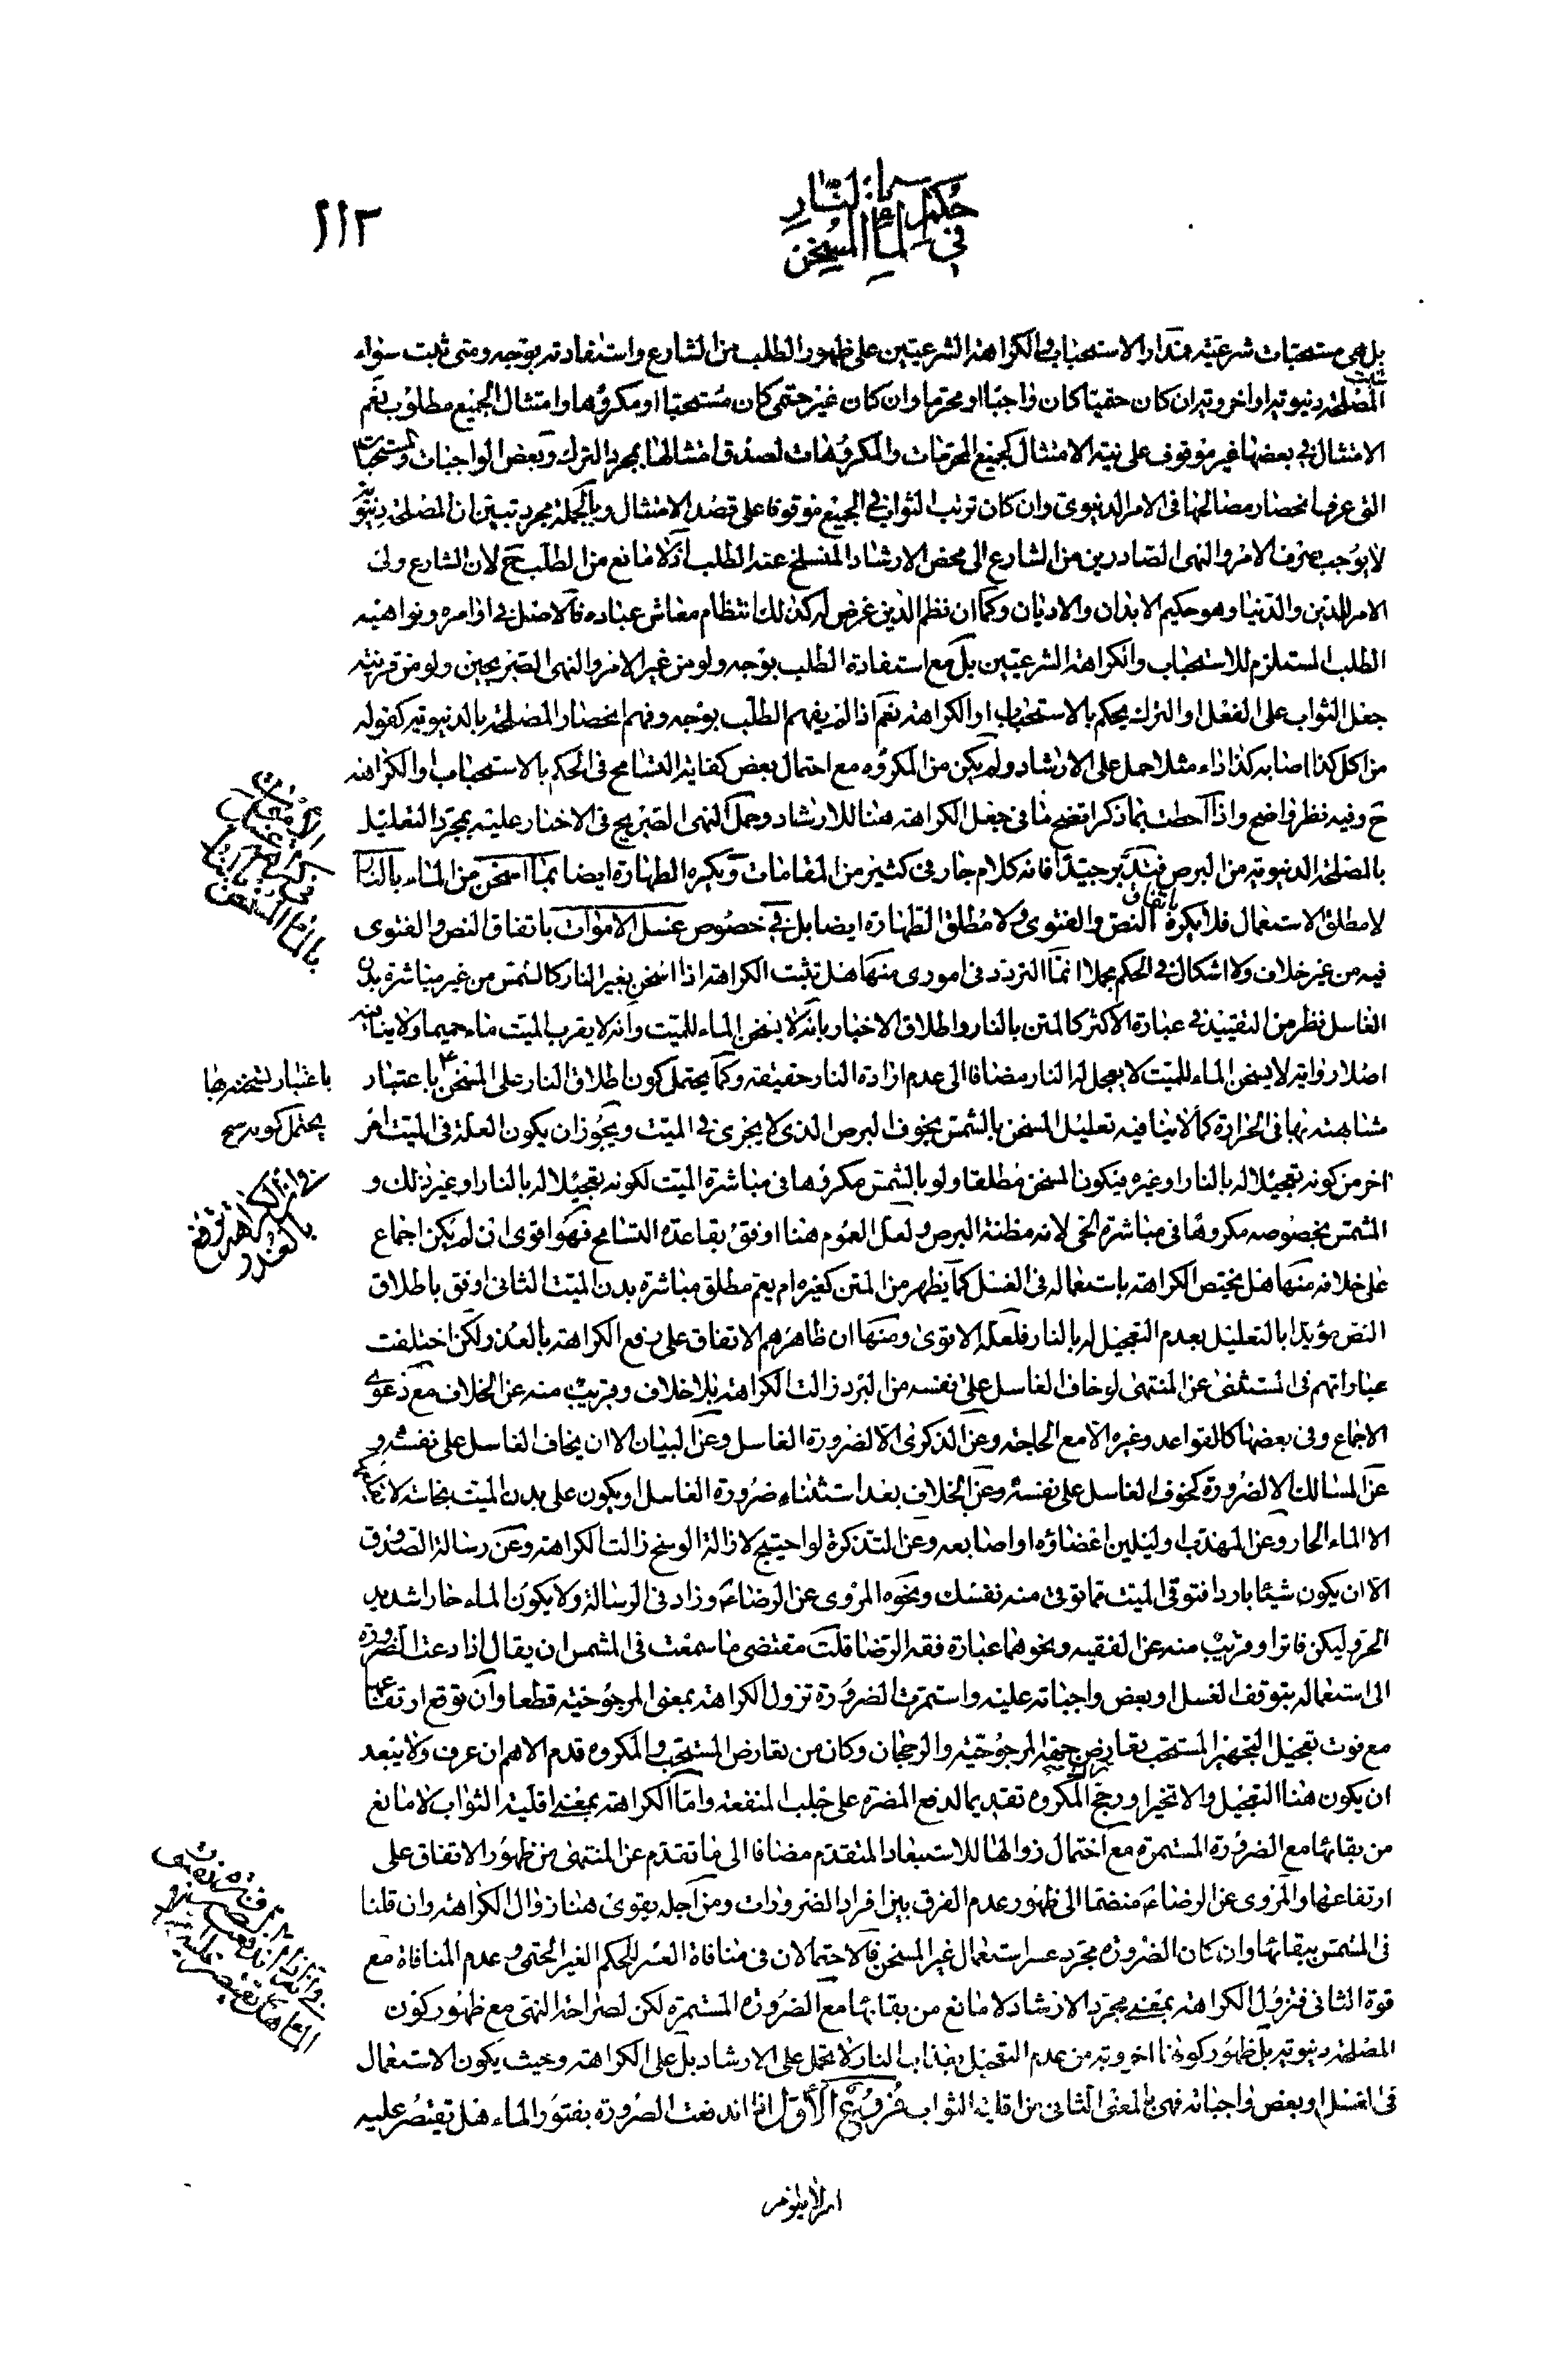 ١١٣
حكم
في الماء المسخن بالنار
بل هي مستحبات شرعية مدار الاستحباب والكراهة الشرعيتين على ظهور الطلب من الشارع واستفادته بوجه ومتى ثبت سواء
المصلحة دنيوية او اخروية ان كان حتميا كان واجبا او محرما وان كان غير حتمي كان مستحبا او مكروها وامتثال الجميع مطلوب نعم
الامتثال في بعضها غير موقوف على نية الامتثال كجميع المحرمات والمكروهات لصدق امتثالها بمجرد الترك وبعض الواجبات والمستحبات
التي عرفها انحصار مصالحها في الامر الدنيوي وان كان ترتب الثواب في الجميع موقوفا على قصد الامتثال وبالجملة مجرد تبين ان المصلحة دنيوية
لا يوجب صرف الامر والنهي الصادرين من الشارع الى محض الارشاد المنسلخ عنه الطلب اذ لا مانع من الطلب ح لان الشارع ولي
الامر للدين والدنيا وهو حكيم الابدان والاديان وكما ان نظم الدين غرض له كذلك انتظام معاش عباده فالاصل في اوامره ونواهيه
الطلب المستلزم للاستحباب والكراهة الشرعيتين بل مع استفادة الطلب بوجه ولو من غير الامر والنهي الصريحين ولو من قرينة
جعل الثواب على الفعل او الترك يحكم بالاستحباب او الكراهة نعم اذا لم يفهم الطلب بوجه وفهم انحصار المصلحة بالدنيوية كقوله
من اكل كذا اصابه كذا داء مثلا حمل على الارشاد ولم يكن من المكروه مع احتمال بعض كفاية التسامح في الحكم بالاستحباب او الكراهة
ح وفيه نظر واضح واذا احطت بما ذكر اتضح ما في جعل الكراهة هنا للارشاد وحمل النهي الصريح في الاخبار عليه بمجرد التعليل
بالمصلحة الدنيوية من البرص فتدبر جيدا فانه كلام جار في كثير من المقامات ويكره الطهارة ايضا بما اسخن من الماء بالنار
لا مطلق الاستعمال فلا يكره باتفاق النص والفتوى ولا مطلق الطهارة ايضا بل في خصوص غسل الاموات باتفاق النص والفتوى
فيه من غير خلاف ولا اشكال في الحكم مجملا انما التردد في امور منها هل تثبت الكراهة اذا اسخن بغير النار كالشمس من غير مباشرة بدن
الغاسل نظر من التقييد في عبارة الاكثر كالمتن بالنار واطلاق الاخبار بانه لا يسخن الماء للميت وانه لا يقرب الميت ماء حميما ولا ينافيه
اصلا رواية لا يسخن الماء للميت لا يعجل له النار مضافا الى عدم ارادة النار حقيقة وكما يحتمل كون اطلاق النار على المسخن باعتبار
مشابهته بها في الحرارة كما لا ينافيه تعليل المسخن بالشمس بخوف البرص الذي لا يجري في الميت ويجوز ان يكون العلة في الميت امر
اخر من كونه تعجيلا له بالنار او غيره فيكون المسخن مطلقا ولو بالشمس مكروها في مباشرة الميت لكونه تعجيلا له بالنار او غير ذلك و
المشمس بخصوصه مكروها في مباشرة الحي لانه مظنة البرص ولعل العموم هنا اوفق بقاعدة التسامح فهو اقوى ان لم يكن اجماع
على خلافه منها هل يختص الكراهة باستعماله في الغسل كما يظهر من المتن كغيره ام يعم مطلق مباشرة بدن الميت الثاني اوفق باطلاق
النص مؤيدا بالتعليل بعدم التعجيل له بالنار فلعله الاقوى ومنها ان ظاهرهم الاتفاق على رفع الكراهة بالعذر ولكن اختلفت
عباراتهم في المستثنى عن المنتهى لو خاف الغاسل على نفسه من البرد زالت الكراهة بلا خلاف وقريب منه عن الخلاف مع دعوى
الاجماع وفي بعضها كالقواعد وغيره الا مع الحاجة وعن الذكرى الا لضرورة الغاسل وعن البيان الا ان يخاف الغاسل على نفسه و
عن المسالك الا لضرورة كخوف الغاسل على نفسه وعن الخلاف بعد استثناء ضرورة الغاسل او يكون على بدن الميت نجاسة لا يقلعها
الا الماء الحار وعن المهذب او ليلين اعضاؤه او اصابعه وعن التذكرة لو احتيج لازالة الوسخ زالت الكراهة وعن رسالة الصدوق
الا ان يكون شيئا باردا فتوقي الميت مما توقي منه نفسك ونحوه المروي عن الرضا ع وزاد في الرسالة ولا يكون الماء حارا شديد
الحر وليكن فاترا وقريب منه عن الفقيه ونحوهما عبارة فقه الرضا قلت مقتضى ما سمعت في المشمس ان يقال اذا دعت الضرورة
الى استعماله بتوقف الغسل او بعض واجباته عليه واستمرت الضرورة تزول الكراهة بمعنى المرجوحية قطعا وان توقع ارتفاعها
مع فوت تعجيل التجهيز المستحب تعارض جهة المرجوحية والرجحان وكان من تعارض المستحب والمكروه قدم الاهم ان عرف ولا يبعد
ان يكون هنا التعجيل والا تخير او رجح المكروه تقديما لدفع المضرة على جلب المنفعة واما الكراهة بمعنى اقلية الثواب لا مانع
من بقائها مع الضرورة المستمرة مع احتمال زوالها للاستبعاد المتقدم مضافا الى ما تقدم عن المنتهى من ظهور الاتفاق على
ارتفاعها والمروي عن الرضا ع منضما الى ظهور عدم الفرق بين افراد الضرورات ومن اجله يقوى هنا زوال الكراهة وان قلنا
في المشمس ببقائها وان كان الضرورة مجرد عسر استعمال غير المسخن فالاحتمالان في منافاة العسر للحكم الغير الحتمي وعدم المنافاة مع
قوة الثاني فتزول الكراهة بمعنى مجرد الارشاد لا مانع من بقائها مع الضرورة المستمرة لكن لصراحة النهي مع ظهور كون
المصلحة دنيوية بل ظهور كونها اخروية من عدم التعجيل بعذاب النار لا تحمل على الارشاد بل على الكراهة وحيث يكون الاستعمال
في الغسل او بعض واجباته فهي بالمعنى الثاني من اقلية الثواب فروع الاول اذا اندفعت الضرورة بفتور الماء هل تقتصر عليه
باعتبار تسخنه بها
يحتمل كونه
في ان الكراهة ترتفع
بالعذر
ام لا يلزم